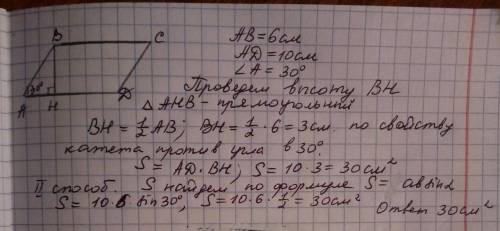 B
C
30°
A
H
D
AB = 6 см
AD = 10 см
∠A = 30°
Проведем высоту BH
△ AHB - прямоугольный
BH = 1/2 AB; BH = 1/2 · 6 = 3 см. по свойству
катета против угла в 30°.
S = AD · BH; S = 10 · 3 = 30 см²
II способ. S найдем по формуле S = ab sin α
S = 10 · 6 sin 30°; S = 10 · 6 · 1/2 = 30 см²
Ответ 30 см²